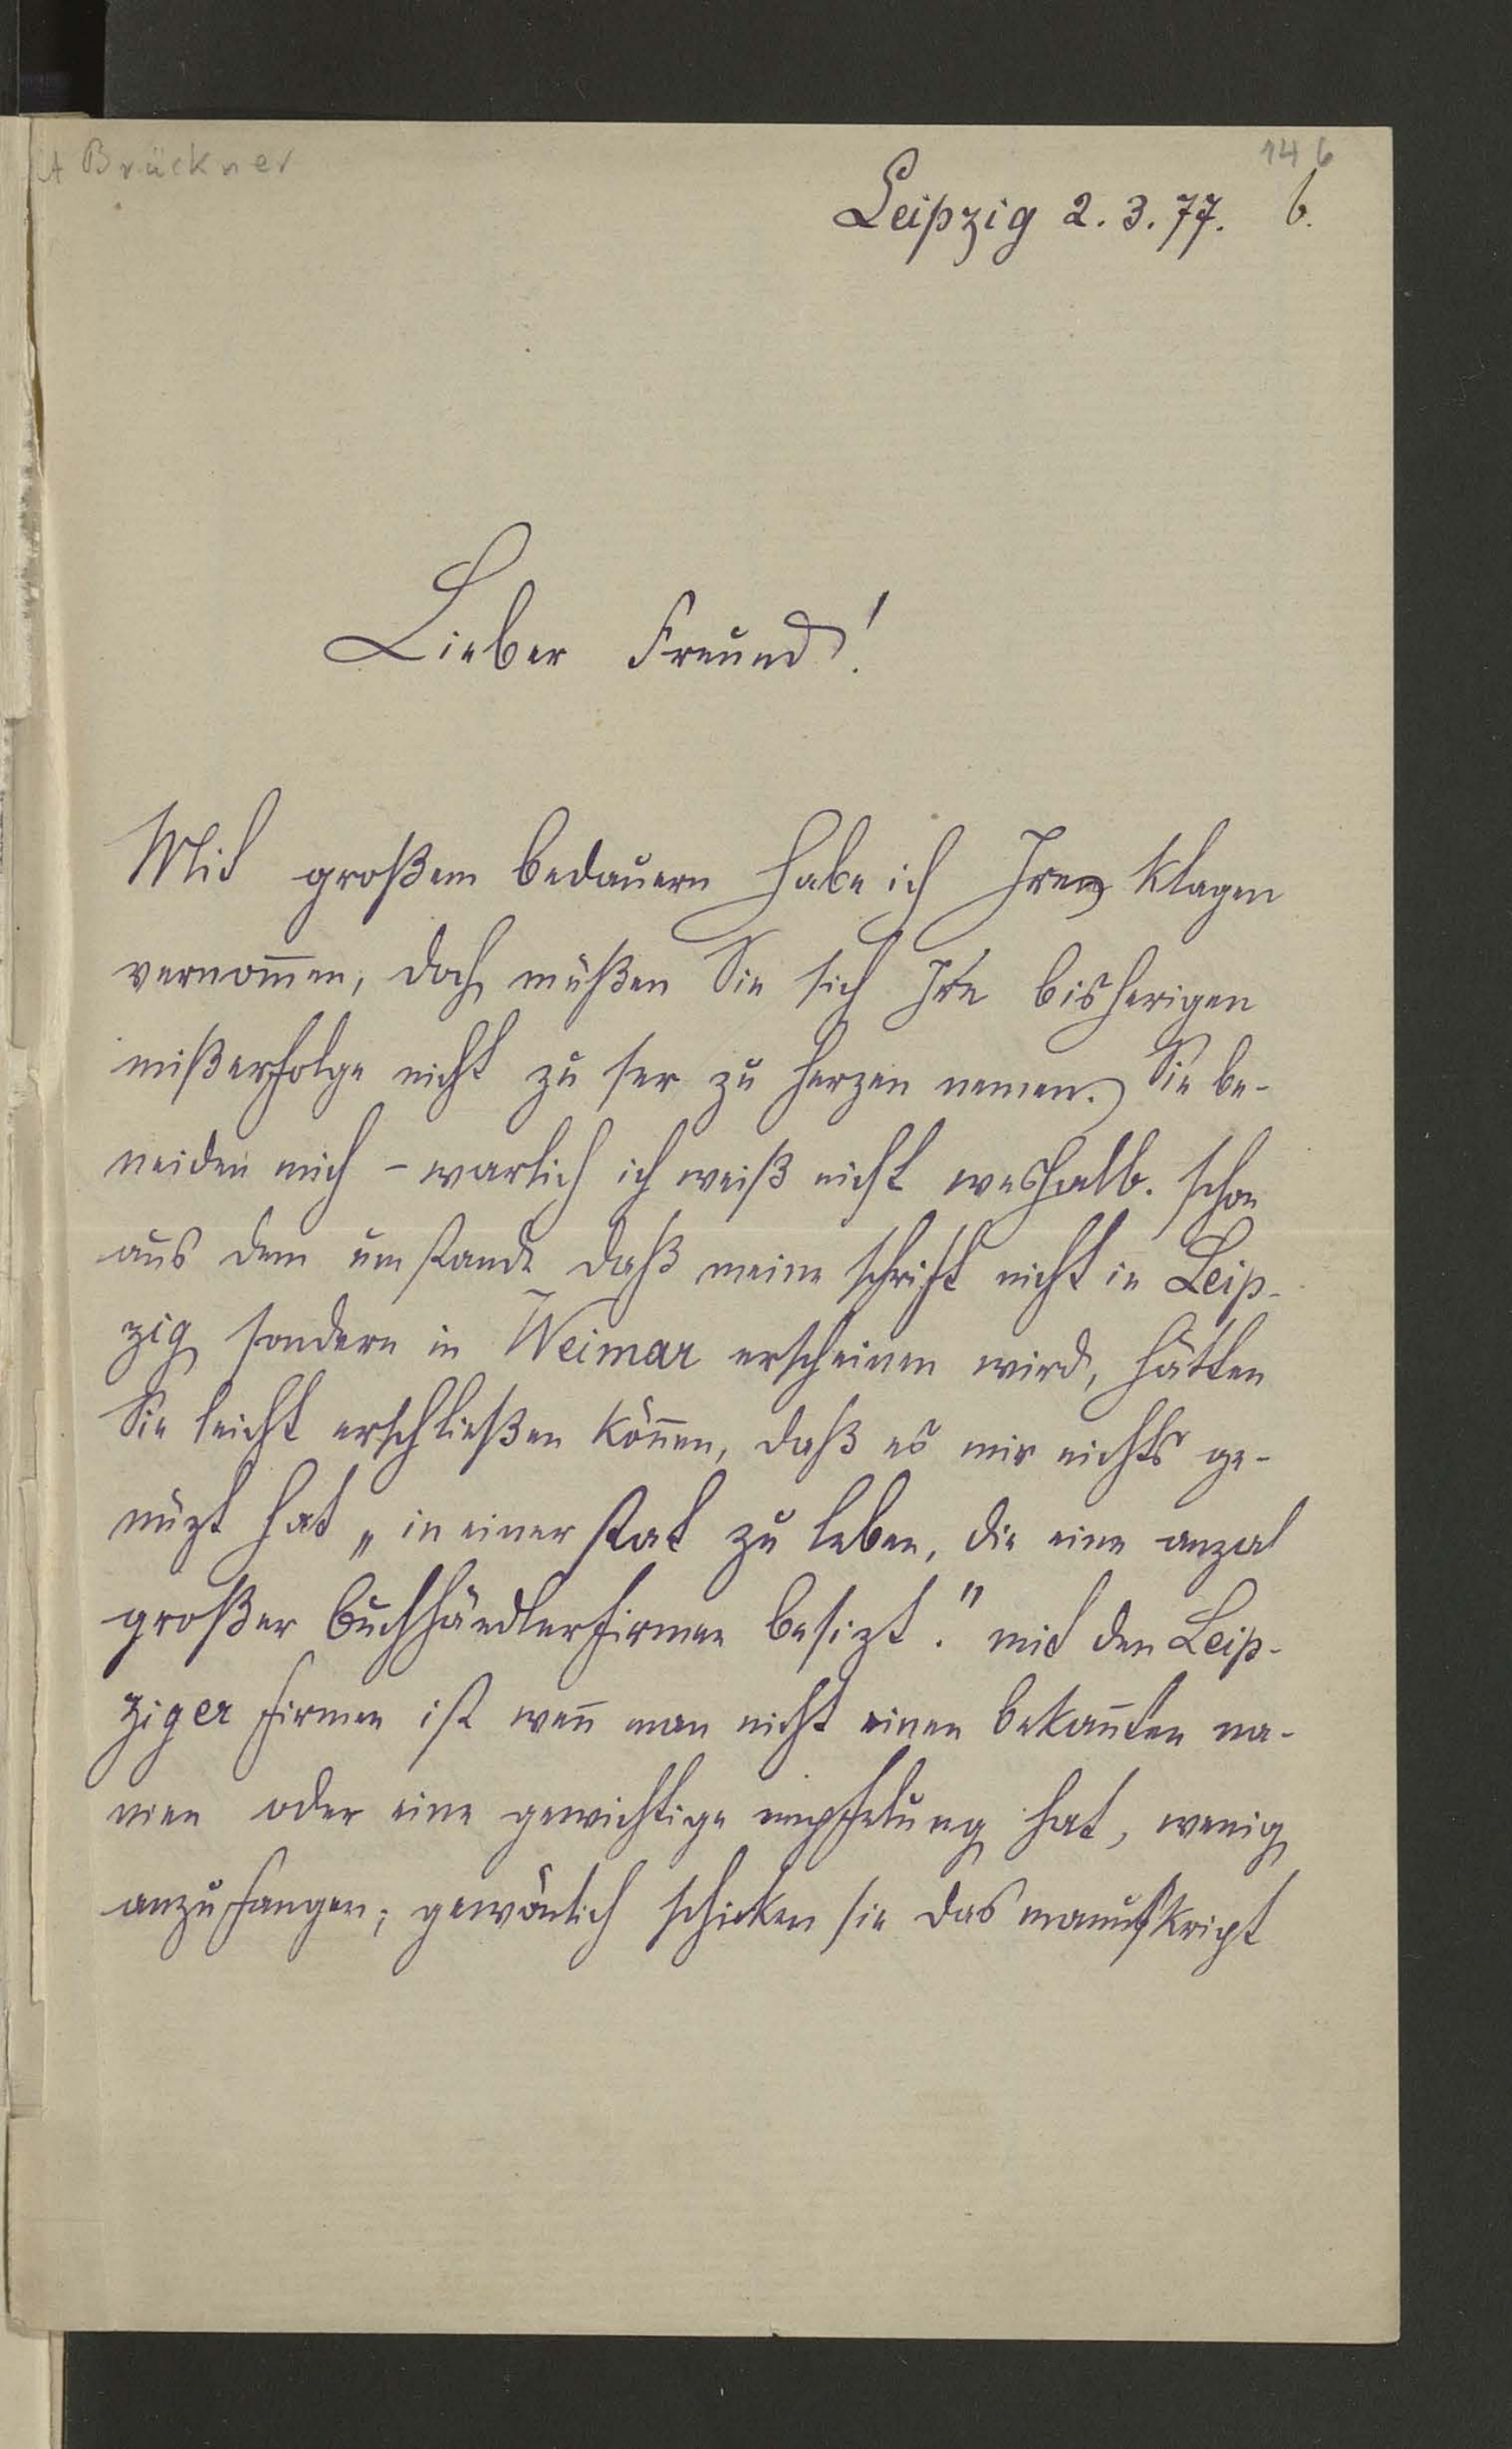 A Brückner
146
Leipzig 2. 3. 77. 6.
Lieber Freund!
Mit großem bedauern habe ich Ire klagen
vernom̄en, doch müßen Sie sich Ire bisherigen
mißerfolge nicht zu ser zu herzen nemen. Sie be-
neiden mich – warlich ich weiß nicht weshalb. schon
aus dem umstande daß meine schrift nicht in Leip-
zig sondern in Weimar erscheinen wird, hätten
Sie leicht erschließen kön̄en, daß es mir nichts ge-
nüzt hat „in einer stat zu leben, die eine anzal
großer buchhändlerfirmen besizt." mit den Leip-
ziger firmen ist wen̄ man nicht einen bekan̄ten na-
men oder eine gewichtige empfelung hat, wenig
anzufangen; gewönlich schicken sie das manuskript